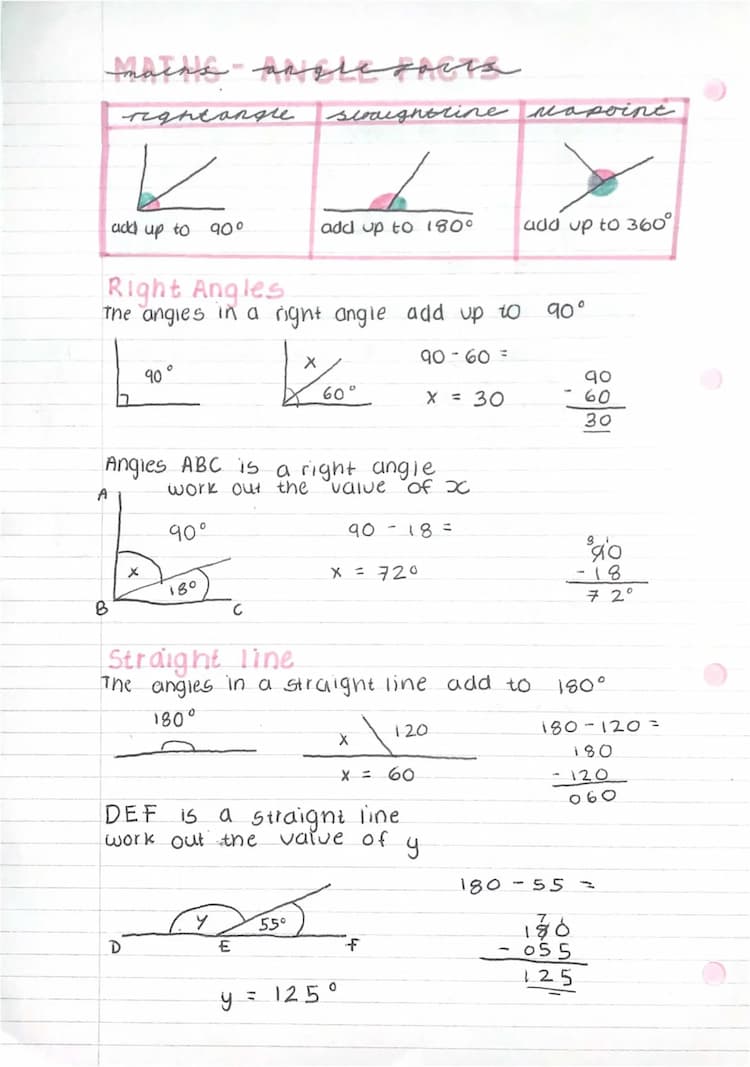 MATHS - ANGLE FACTS
maths angle facts
right angle straight line in a point
add up to 90° add up to 180° add up to 360°
Right Angles
The angles in a right angle add up to 90°
90° x 60° 90 - 60 =
x = 30
90
- 60
30
Angles ABC is a right angle
work out the value of x
A
90° 90 - 18 =
x 18° x = 72°
B C
8 1
90
- 18
72°
Straight line
The angles in a straight line add to 180°
180° x 120 180 - 120 =
x = 60
180
- 120
060
DEF is a straight line
work out the value of y
180 - 55 =
y 55°
D E F
7 1
180
- 055
125
y = 125°